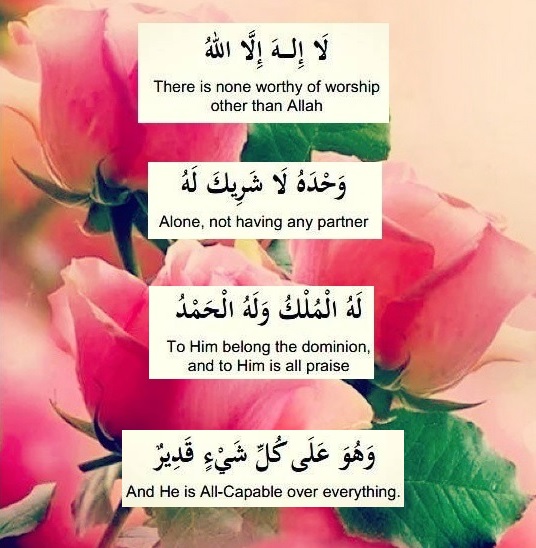 لَا إِلــهَ إِلَّا اللهُ
There is none worthy of worship
other than Allah
وَحْدَهُ لَا شَرِيكَ لَهُ
Alone, not having any partner
لَهُ الْمُلْكُ وَلَهُ الْحَمْدُ
To Him belong the dominion,
and to Him is all praise
وَهُوَ عَلَى كُلِّ شَيْءٍ قَدِيرٌ
And He is All-Capable over everything.